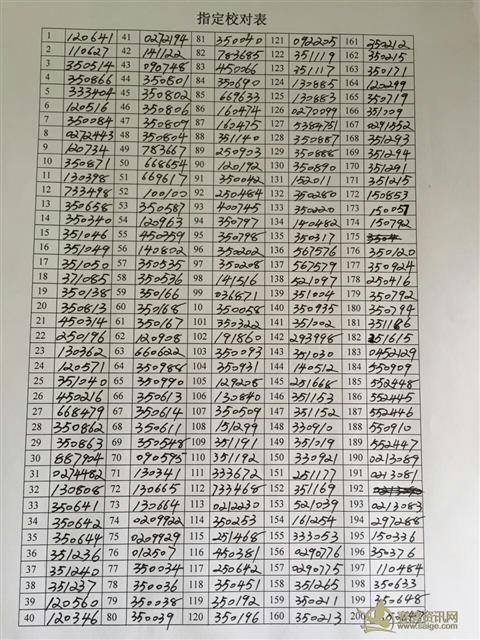 指定校对表
1 120641 41 0272194 81 350040 121 092205 161 350212
2 110627 42 141122 82 783685 122 351119 162 350215
3 350514 43 090748 83 45006 123 351117 163 350171
4 350866 44 350801 84 350690 124 130885 164 120299
5 333404 45 350802 85 669633 125 130883 165 350719
6 120516 46 350806 86 160474 126 0270099 166 351009
7 350084 47 350809 87 160475 127 5384751 167 0291352
8 0272443 48 350804 88 351140 128 350887 168 351293
9 120734 49 783667 89 250903 129 350888 169 351294
10 350871 50 668654 90 120192 130 350890 170 351241
11 130398 51 669617 91 350042 131 152011 171 351215
12 733498 52 100100 92 250484 132 350280 172 150853
13 350658 53 350587 93 400745 133 350220 173 150057
14 350340 54 120963 94 350797 134 140482 174 150792
15 351046 55 450359 95 350798 135 350317 175
16 351049 56 140802 96 350202 136 567576 176 350120
17 351050 57 350535 97 350208 137 567579 177 350924
18 371085 58 350536 98 141516 138 521097 178 250416
19 350138 59 350166 99 036871 139 351004 179 350792
20 350813 60 350168 100 350058 140 350935 180 350794
21 450314 61 350167 101 350322 141 351002 181 351186
22 250196 62 120908 102 191860 142 293998 182 251615
23 130362 63 660622 103 350093 143 351030 183 0452129
24 120571 64 350988 104 350931 144 140512 184 550909
25 351040 65 350990 105 129208 145 251668 185 552448
26 450216 66 350613 106 130840 146 351153 186 552445
27 668479 67 350614 107 350509 147 351152 187 552446
28 350862 68 350611 108 151299 148 330910 188 550910
29 350863 69 350548 109 351191 149 351019 189 552447
30 887904 70 090595 110 351192 150 330921 190 0213089
31 0274482 71 130341 111 333672 151 251177 191 0213081
32 130808 72 130665 112 733468 152 351169 192
33 350641 73 130664 113 0212230 153 521039 193 0213083
34 350642 74 0209922 114 350253 154 161254 194 297288
35 350644 75 0209929 115 251468 155 333053 195 150336
36 351236 76 012507 116 450381 156 0290776 196 350376
37 351240 77 350034 117 250642 157 0290775 197 110484
38 351237 78 350036 118 350451 158 351265 198 350633
39 120560 79 350038 119 350192 159 350211 199 350648
40 120346 80 350039 120 350196 160 350213 200
赛鸽资讯网
www.saige.com